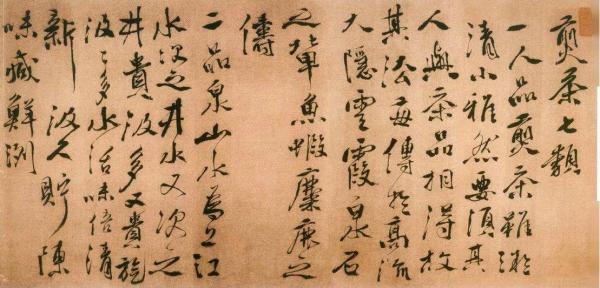 煎茶七類
一人品煎茶雖
清小雅然要須其
人與茶品相得故
其法每傳於高流
大隱雲霞泉石
之輩魚蝦麋鹿之
儔
二品泉山水為上江
水次之井水又次之
井貴汲多又貴旋
汲〻多水活味倍清
新汲久貯陳
味減鮮洌